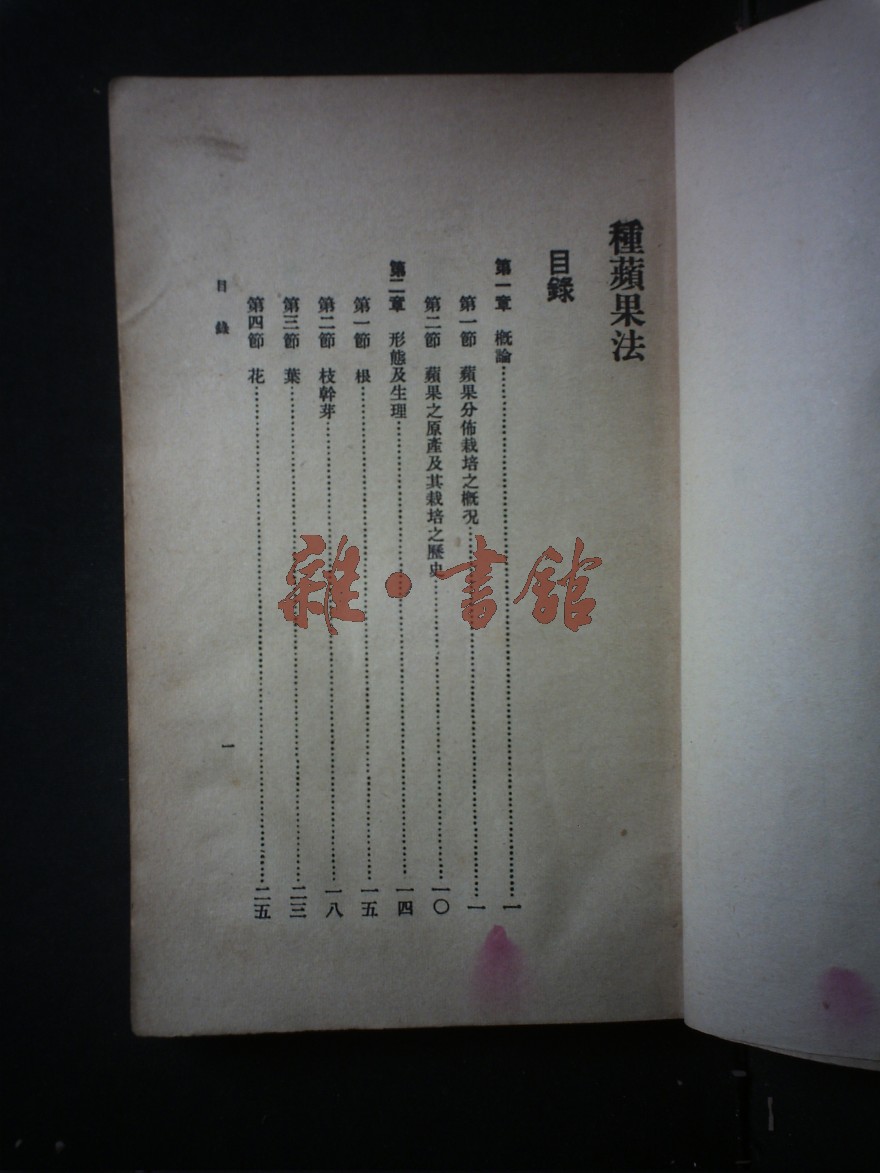 種蘋果法
目錄
第一章 概論……一
第一節 蘋果分佈栽培之概況……一
第二節 蘋果之原產及其栽培之歷史……一〇
第二章 形態及生理……一四
第一節 根……一五
第二節 枝幹芽……一八
第三節 葉……二三
第四節 花……二五
目錄
一
雜·書館